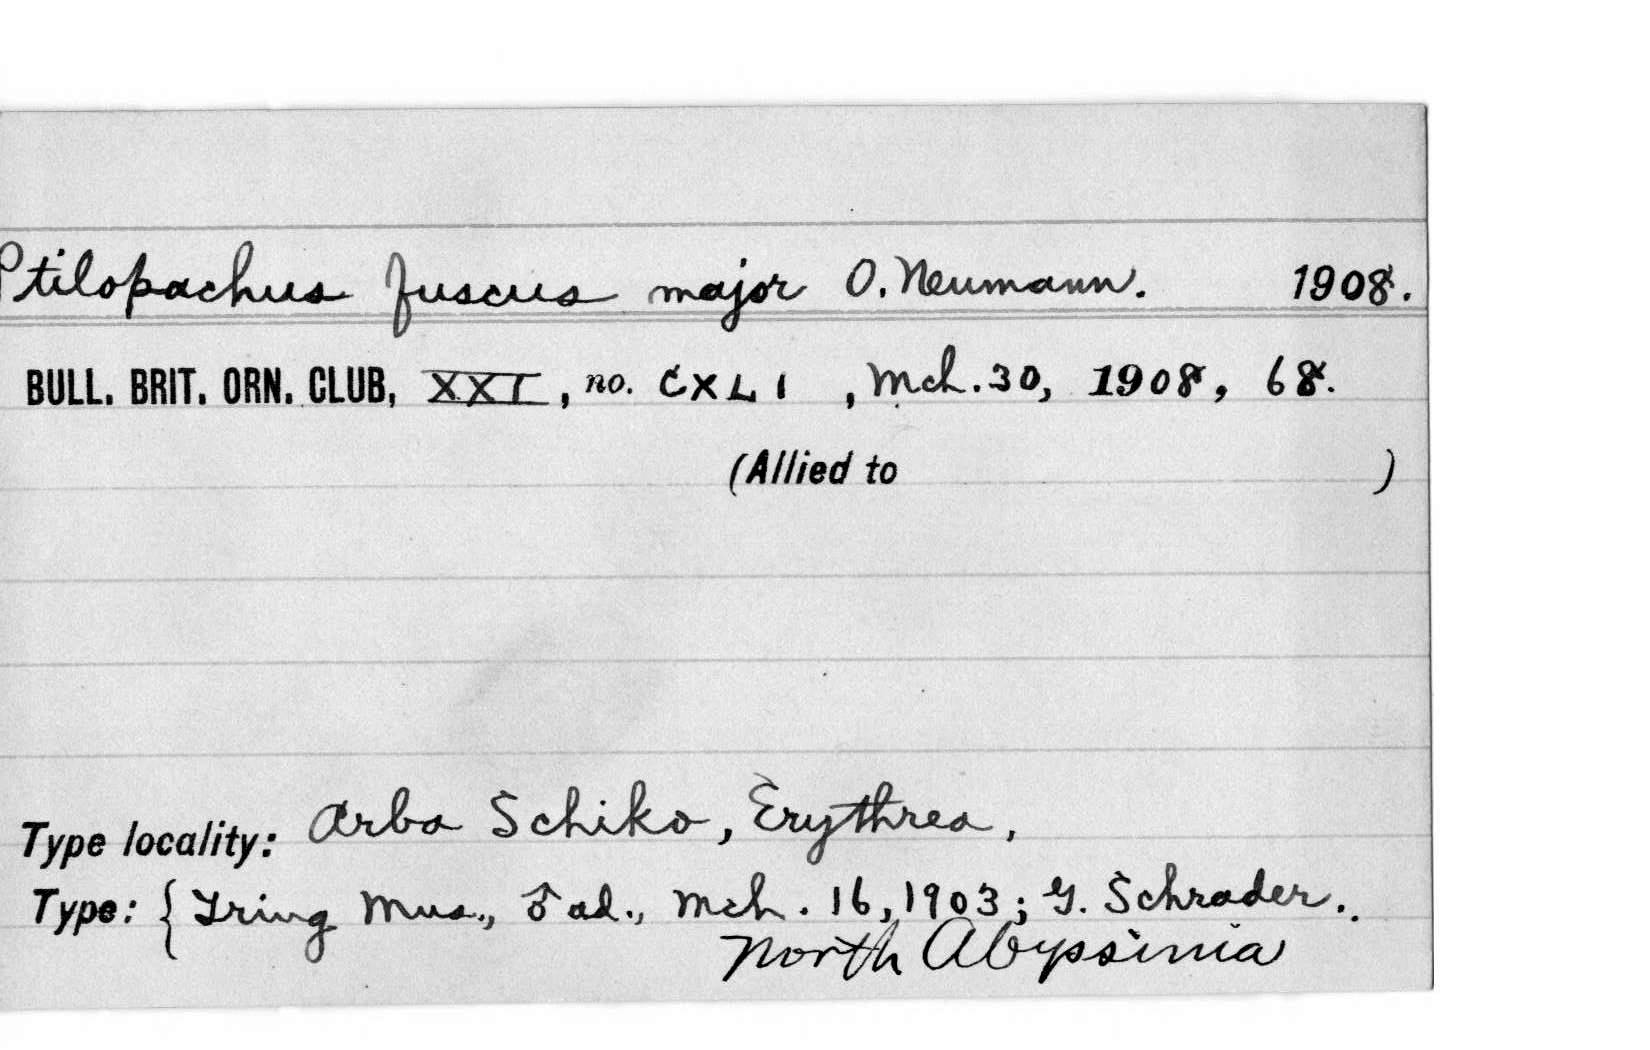 Ptilopachus fuscus major O. Neumann. 1908.
BULL. BRIT. ORN. CLUB, XXI, no. CXLI, Mch. 30, 1908, 68.
(Allied to )
Type locality: Arba Schiko, Erythrea,
Type: { Tring Mus., ♂ ad., Mch. 16, 1903; G. Schrader..
North Abyssinia